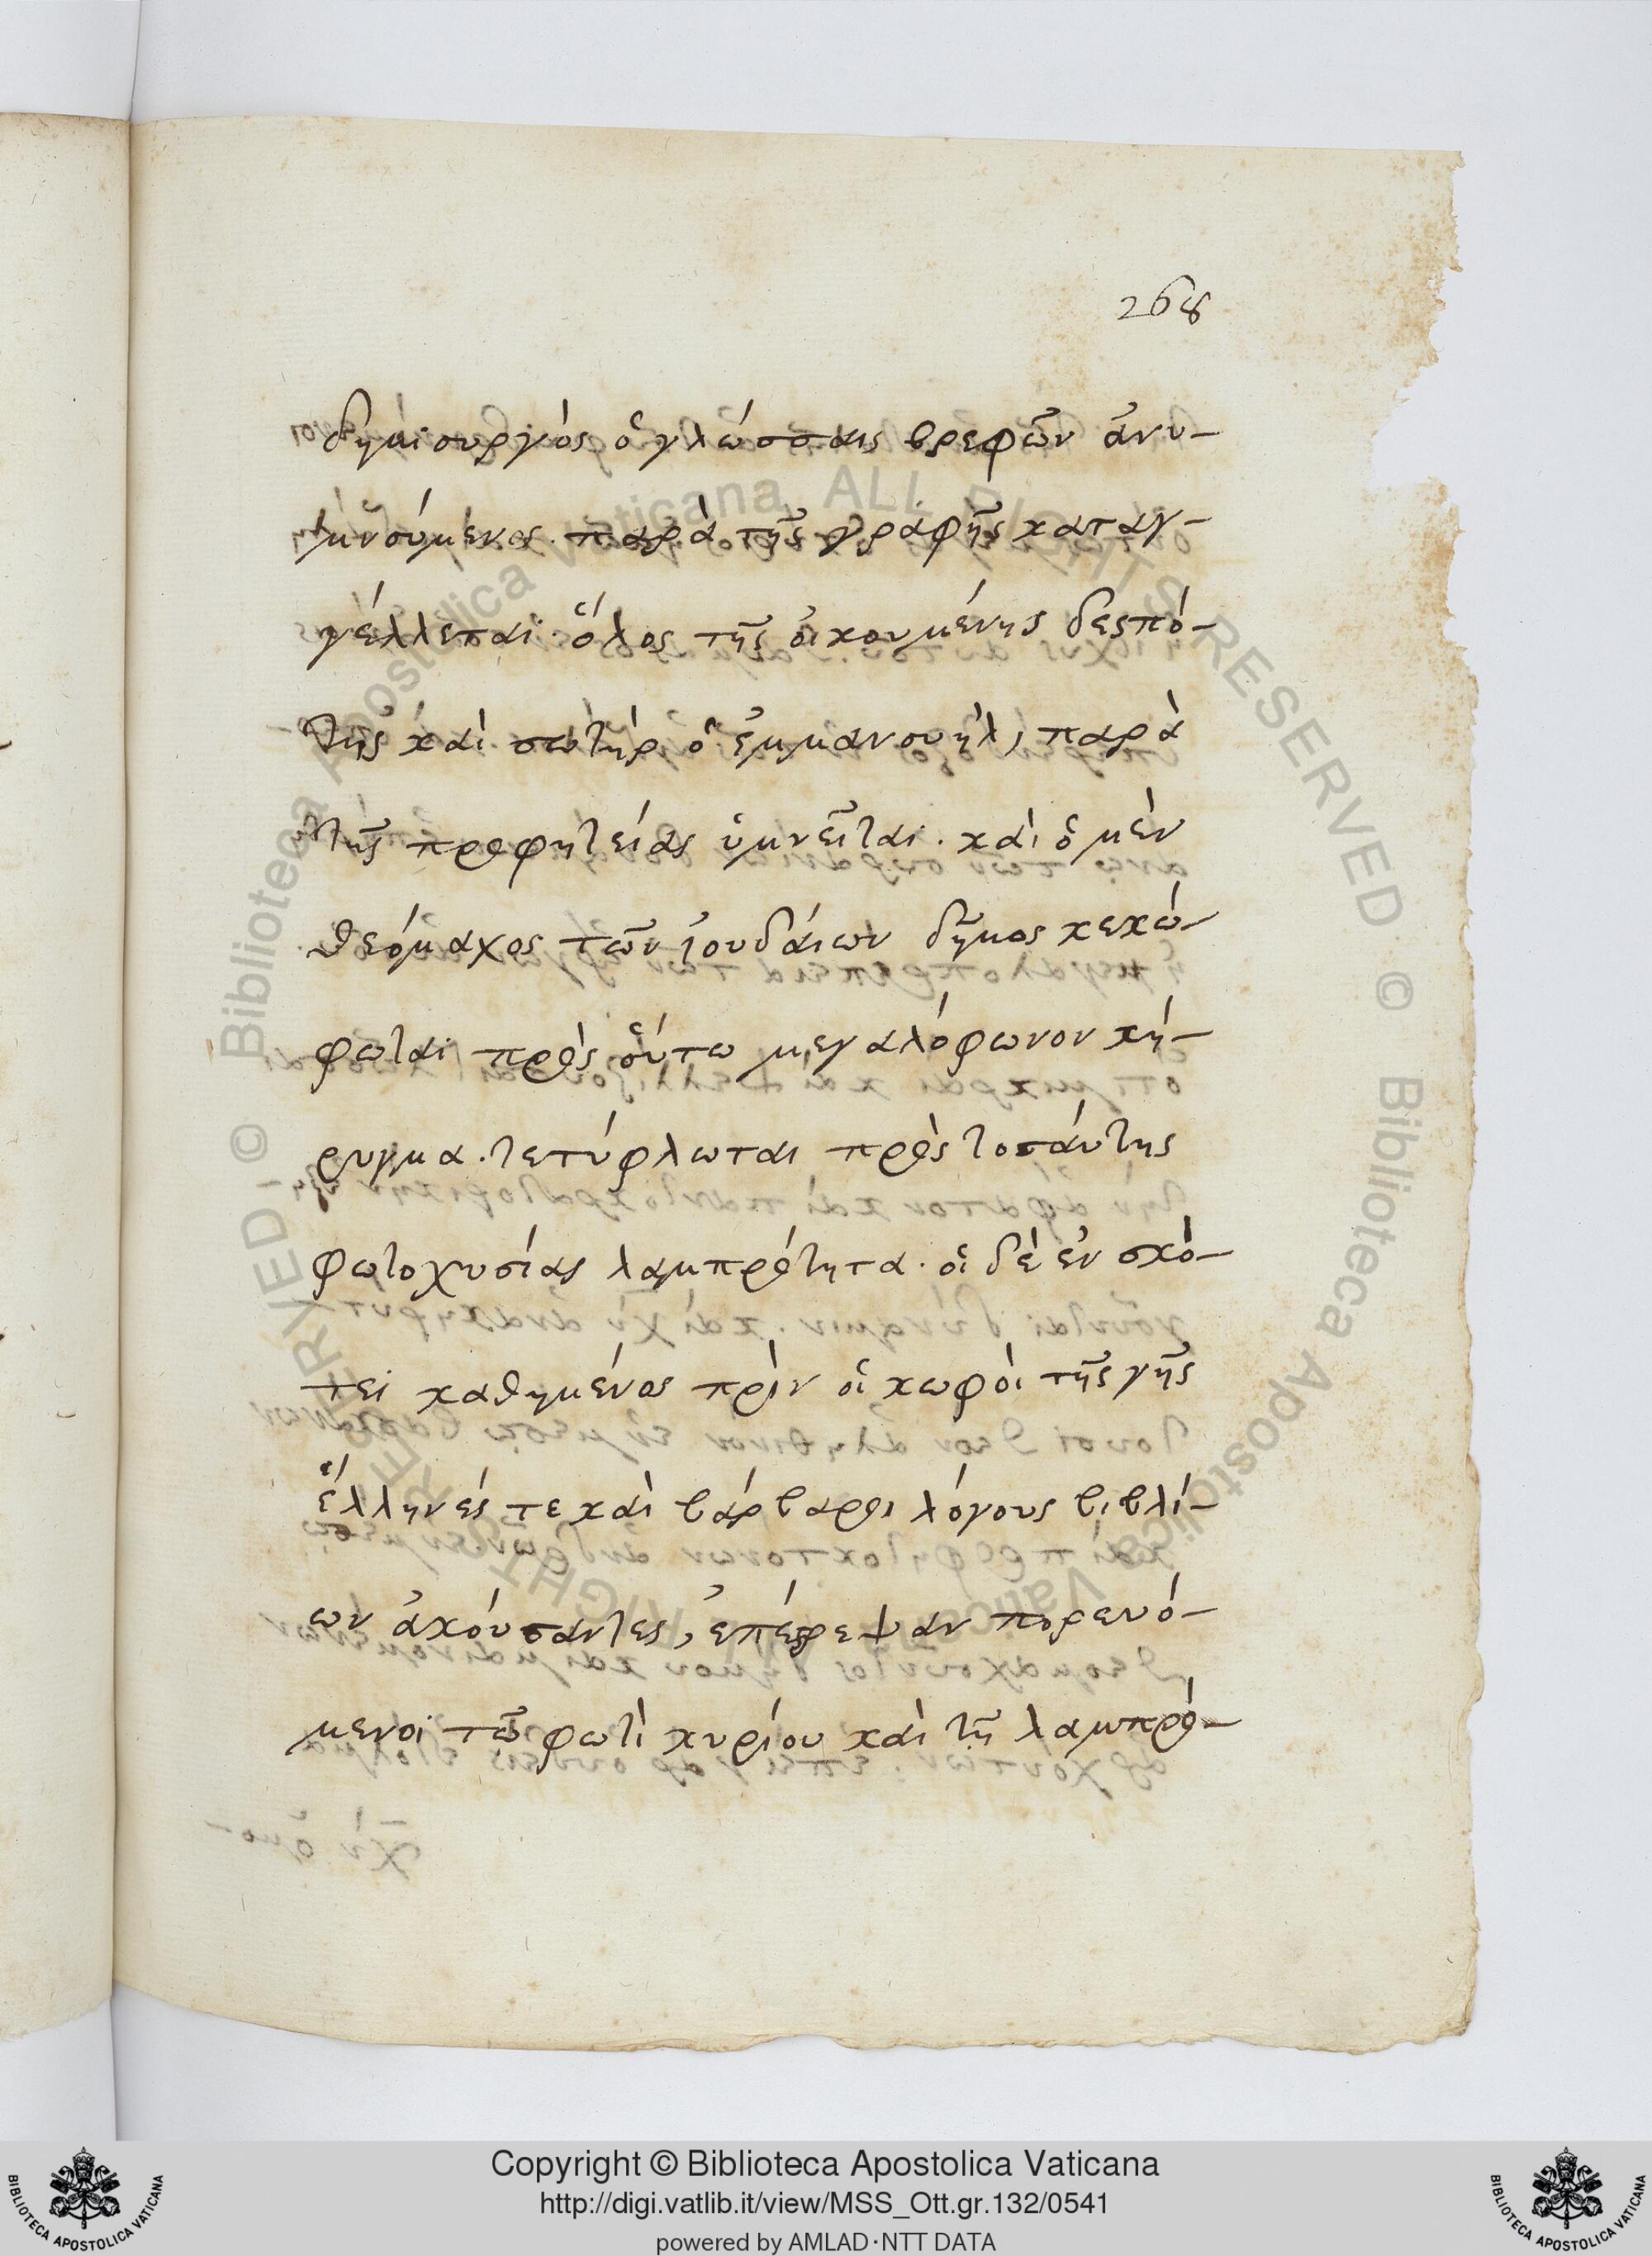 268
δημιουργὸς ὁ γλώσσαις βρεφῶν ἀνυ-
μνούμενος. παρὰ τῆς γραφῆς καταγ-
γέλλεται. ὅλος τῆς οἰκουμένης δεσπό-
της καὶ σωτὴρ ὁ ἐμμανουὴλ, παρὰ
τῆς προφητείας ὑμνεῖται. καὶ ὁ μὲν
θεόμαχος τῶν ἰουδαίων δῆμος κεκώ-
φωται πρὸς οὕτω μεγαλόφωνον κή-
ρυγμα. τετύφλωται πρὸς τοσαύτης
φωτοχυσίας λαμπρότητα. οἱ δὲ ἐν σκό-
τει καθημένος πρὶν οἱ κωφοὶ τῆς γῆς
ἕλληνές τε καὶ βάρβαροι λόγους βιβλί-
ων ἀκούσαντες, ἐπέστρεψαν πορευό-
μενοι τῶ φωτὶ κυρίου καὶ τῆ λαμπρό-
Copyright © Biblioteca Apostolica Vaticana
http://digi.vatlib.it/view/MSS_Ott.gr.132/0541
powered by AMLAD·NTT DATA
BIBLIOTECA APOSTOLICA VATICANA
BIBLIOTECA APOSTOLICA VATICANA